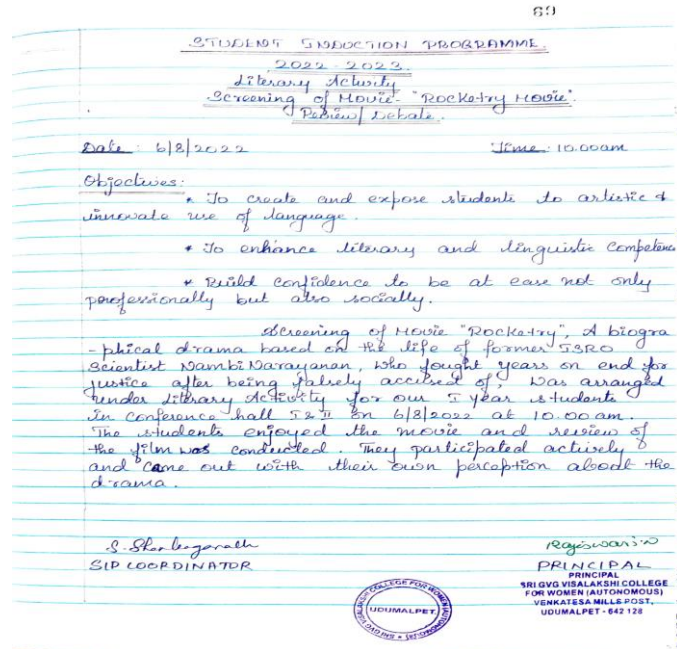 69
STUDENT INDUCTION PROGRAMME.
2022 - 2023.
Literary Activity
Screening of Movie - "Rocketry Movie".
Review/ Debate.
Date : 6/8/2022 Time : 10.00am
Objectives:
* To create and expose students to artistic &
innovate use of language.
* To enhance literary and linguistic competence
* Build confidence to be at ease not only
professionally but also socially.
Screening of Movie "Rocketry", A biogra
-phical drama based on the life of former ISRO
Scientist Nambi Narayanan, who fought years on end for
justice after being falsely accused of, was arranged
under Literary Activity for our I year students
in conference hall I & II on 6/8/2022 at 10.00 am.
The students enjoyed the movie and review of
the film was conducted. They participated actively
and came out with their own perception about the
drama.
SIP COORDINATOR
PRINCIPAL
PRINCIPAL
SRI GVG VISALAKSHI COLLEGE
FOR WOMEN (AUTONOMOUS)
VENKATESA MILLS POST,
UDUMALPET - 642 128
UDUMALPET